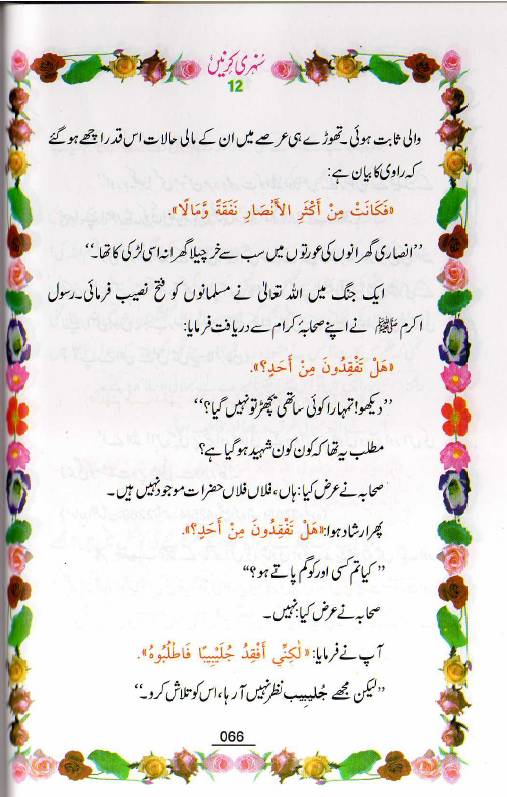 سنہری کرنیں
12
والی ثابت ہوئی۔ تھوڑے ہی عرصے میں ان کے مالی حالات اس قدر اچھے ہو گئے
کہ راوی کا بیان ہے:
«فَكَانَتْ مِنْ أَكْثَرِ الأَنْصَارِ نَفَقَةً وَّمَالًا».
’’انصاری گھرانوں کی عورتوں میں سب سے خرچیلا گھرانہ اسی لڑکی کا تھا۔‘‘
ایک جنگ میں اللہ تعالیٰ نے مسلمانوں کو فتح نصیب فرمائی۔ رسول
اکرم ﷺ نے اپنے صحابۂ کرام سے دریافت فرمایا:
«هَلْ تَفْقِدُونَ مِنْ أَحَدٍ؟».
’’دیکھو! تمہارا کوئی ساتھی بچھڑ تو نہیں گیا؟‘‘
مطلب یہ تھا کہ کون کون شہید ہو گیا ہے؟
صحابہ نے عرض کیا: ہاں، فلاں فلاں حضرات موجود نہیں ہیں۔
پھر ارشاد ہوا: «هَلْ تَفْقِدُونَ مِنْ أَحَدٍ؟».
’’کیا تم کسی اور کو گم پاتے ہو؟‘‘
صحابہ نے عرض کیا: نہیں۔
آپ نے فرمایا: «لٰكِنِّي أَفْقِدُ جُلَيْبِيبًا فَاطْلُبُوهُ».
’’لیکن مجھے جُلیبِیب نظر نہیں آ رہا، اس کو تلاش کرو۔‘‘
066